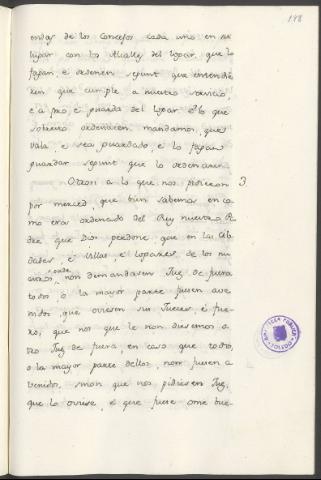 148
endas de los Concejos cada uno en su
lugar con los Alcalles del logar, que lo
fagan, e ordenen segunt que entendie
ren que cumple a nuestro servicio,
e a pro, e guarda del logar è lo que
sobrello ordenaren mandamos, que
vala, e sea guardado, e lo fagan
guardar segunt que lo ordenaren.
Otrosi a lo que nos pidieron 3
por merced, que bien sabemos en co
mo era ordenado del Rey nuestro Pa
dre, que Dios perdone, que en las Cib
dades, e Villas, e logares de los nu
estros, onde non demandasen Juez de fuera
todos, o la mayor parte fuesen ave
nidos, que oviesen sus Jueces de fue
ro, que nos que le non diesemos o
tro Juez de fuera, en caso que todos,
o la mayor parte dellos, non fuesen a
venidos, sinon que nos pidiesen Juez,
que lo oviese, e que fuese ome bue-